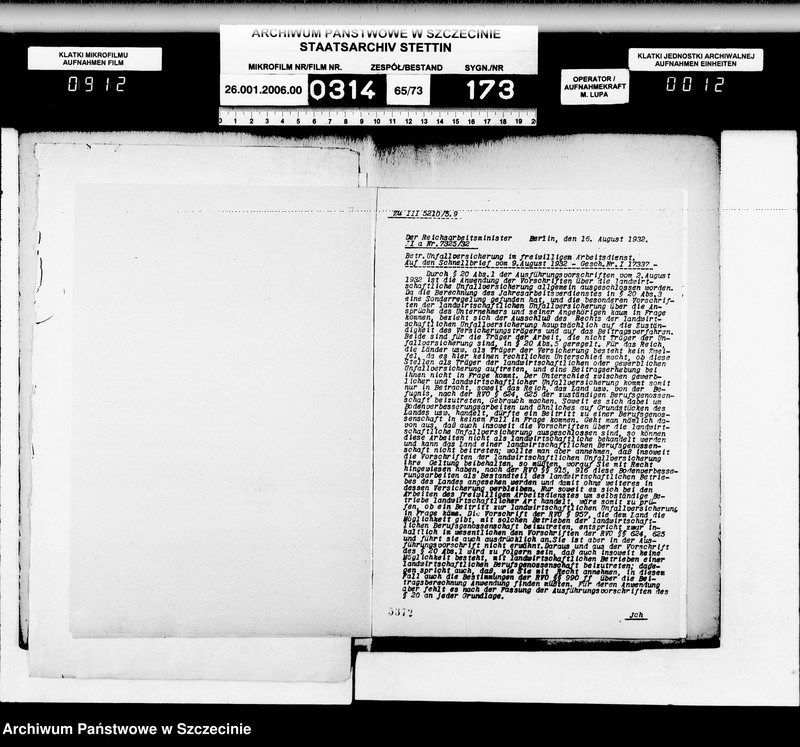 ARCHIWUM PAŃSTWOWE W SZCZECINIE
STAATSARCHIV STETTIN
KLATKI MIKROFILMU
AUFNAHMEN FILM
0912
MIKROFILM NR/FILM NR.
ZESPÓŁ/BESTAND
SYGN./NR
26.001.2006.00
0314
65/73
173
OPERATOR /
AUFNAHMEKRAFT
M. LUPA
KLATKI JEDNOSTKI ARCHIWALNEJ
AUFNAHMEN EINHEITEN
0012
0 1 2 3 4 5 6 7 8 9 10 11 12 13 14 15 16 17 18 19 20
zu III 5210/5.9
Der Reichsarbeitsminister Berlin, den 16. August 1932.
II a Nr.7325/32
Betr.Unfallversicherung im freiwilligen Arbeitsdienst.
Auf den Schnellbrief vom 9.August 1932 - Gesch.Nr.I 17337 -
Durch § 20 Abs.1 der Ausführungsvorschriften vom 2.August
1932 ist die Anwendung der Vorschriften über die landwirt-
schaftliche Unfallversicherung allgemein ausgeschlossen worden.
Da die Berechnung des Jahresarbeitsverdienstes in § 20 Abs.3
eine Sonderregelung gefunden hat, und die besonderen Vorschrif-
ten der landwirtschaftlichen Unfallversicherung über die An-
sprüche des Unternehmers und seiner Angehörigen kaum in Frage
kommen, bezieht sich der Ausschluß des Rechts der landwirt-
schaftlichen Unfallversicherung hauptsächlich auf die Zustän-
digkeit des Versicherungsträgers und auf das Beitragsverfahren.
Beide sind für die Träger der Arbeit, die nicht Träger der Un-
fallversicherung sind, in § 20 Abs.5 geregelt. Für das Reich,
die Länder usw. als Träger der Versicherung besteht kein Zwei-
fel, da es hier keinen rechtlichen Unterschied macht, ob diese
Stellen als Träger der landwirtschaftlichen oder gewerblichen
Unfallversicherung auftreten, und eine Beitragserhebung bei
ihnen nicht in Frage kommt. Der Unterschied zwischen gewerb-
licher und landwirtschaftlicher Unfallversicherung kommt somit
nur in Betracht, soweit das Reich, das Land usw. von der Be-
fugnis, nach der RVO § 624, 625 der zuständigen Berufsgenossen-
schaft beizutreten, Gebrauch machen. Soweit es sich dabei um
Bodenverbesserungsarbeiten und ähnliches auf Grundstücken des
Landes usw. handelt, dürfte ein Beitritt zu einer Berufsgenos-
senschaft in keinem Fall in Frage kommen. Geht man nämlich da-
von aus, daß auch insoweit die Vorschriften über die landwirt-
schaftliche Unfallversicherung ausgeschlossen sind, so können
diese Arbeiten nicht als landwirtschaftliche behandelt werden
und kann das Land einer landwirtschaftlichen Berufsgenossen-
schaft nicht beitreten; wollte man aber annehmen, daß insoweit
die Vorschriften der landwirtschaftlichen Unfallversicherung
ihre Geltung beibehalten, so müßten, worauf Sie mit Recht
hingewiesen haben, nach der RVO §§ 915, 916 diese Bodenverbesse-
rungsarbeiten als Bestandteil des landwirtschaftlichen Betrie-
bes des Landes angesehen werden und damit ohne weiteres in
dessen Versicherung verbleiben. Nur soweit es sich bei den
Arbeiten des freiwilligen Arbeitsdienstes um selbständige Be-
triebe landwirtschaftlicher Art handelt, wäre somit zu prü-
fen, ob ein Beitritt zur landwirtschaftlichen Unfallversicherung
in Frage käme. Die Vorschrift der RVO § 957, die dem Land die
Möglichkeit gibt, mit solchen Betrieben der landwirtschaft-
lichen Berufsgenossenschaft beizutreten, entspricht zwar in-
haltlich im wesentlichen den Vorschriften der RVO §§ 624, 625
und führt sie auch ausdrücklich an.Sie ist aber in der Aus-
führungsvorschrift nicht erwähnt.Daraus und aus der Vorschrift
des § 20 Abs.1 wird zu folgern sein, daß auch insoweit keine
Möglichkeit besteht, mit landwirtschaftlichen Betrieben einer
landwirtschaftlichen Berufsgenossenschaft beizutreten; dage-
gen spricht auch, daß, wie Sie mit Recht annehmen, in diesem
Fall auch die Bestimmungen der RVO §§ 990 ff über die Bei-
tragsberechnung Anwendung finden müßten. Für deren Anwendung
aber fehlt es nach der Fassung der Ausführungsvorschriften des
§ 20 an jeder Grundlage.
5372
jch
Archiwum Państwowe w Szczecinie